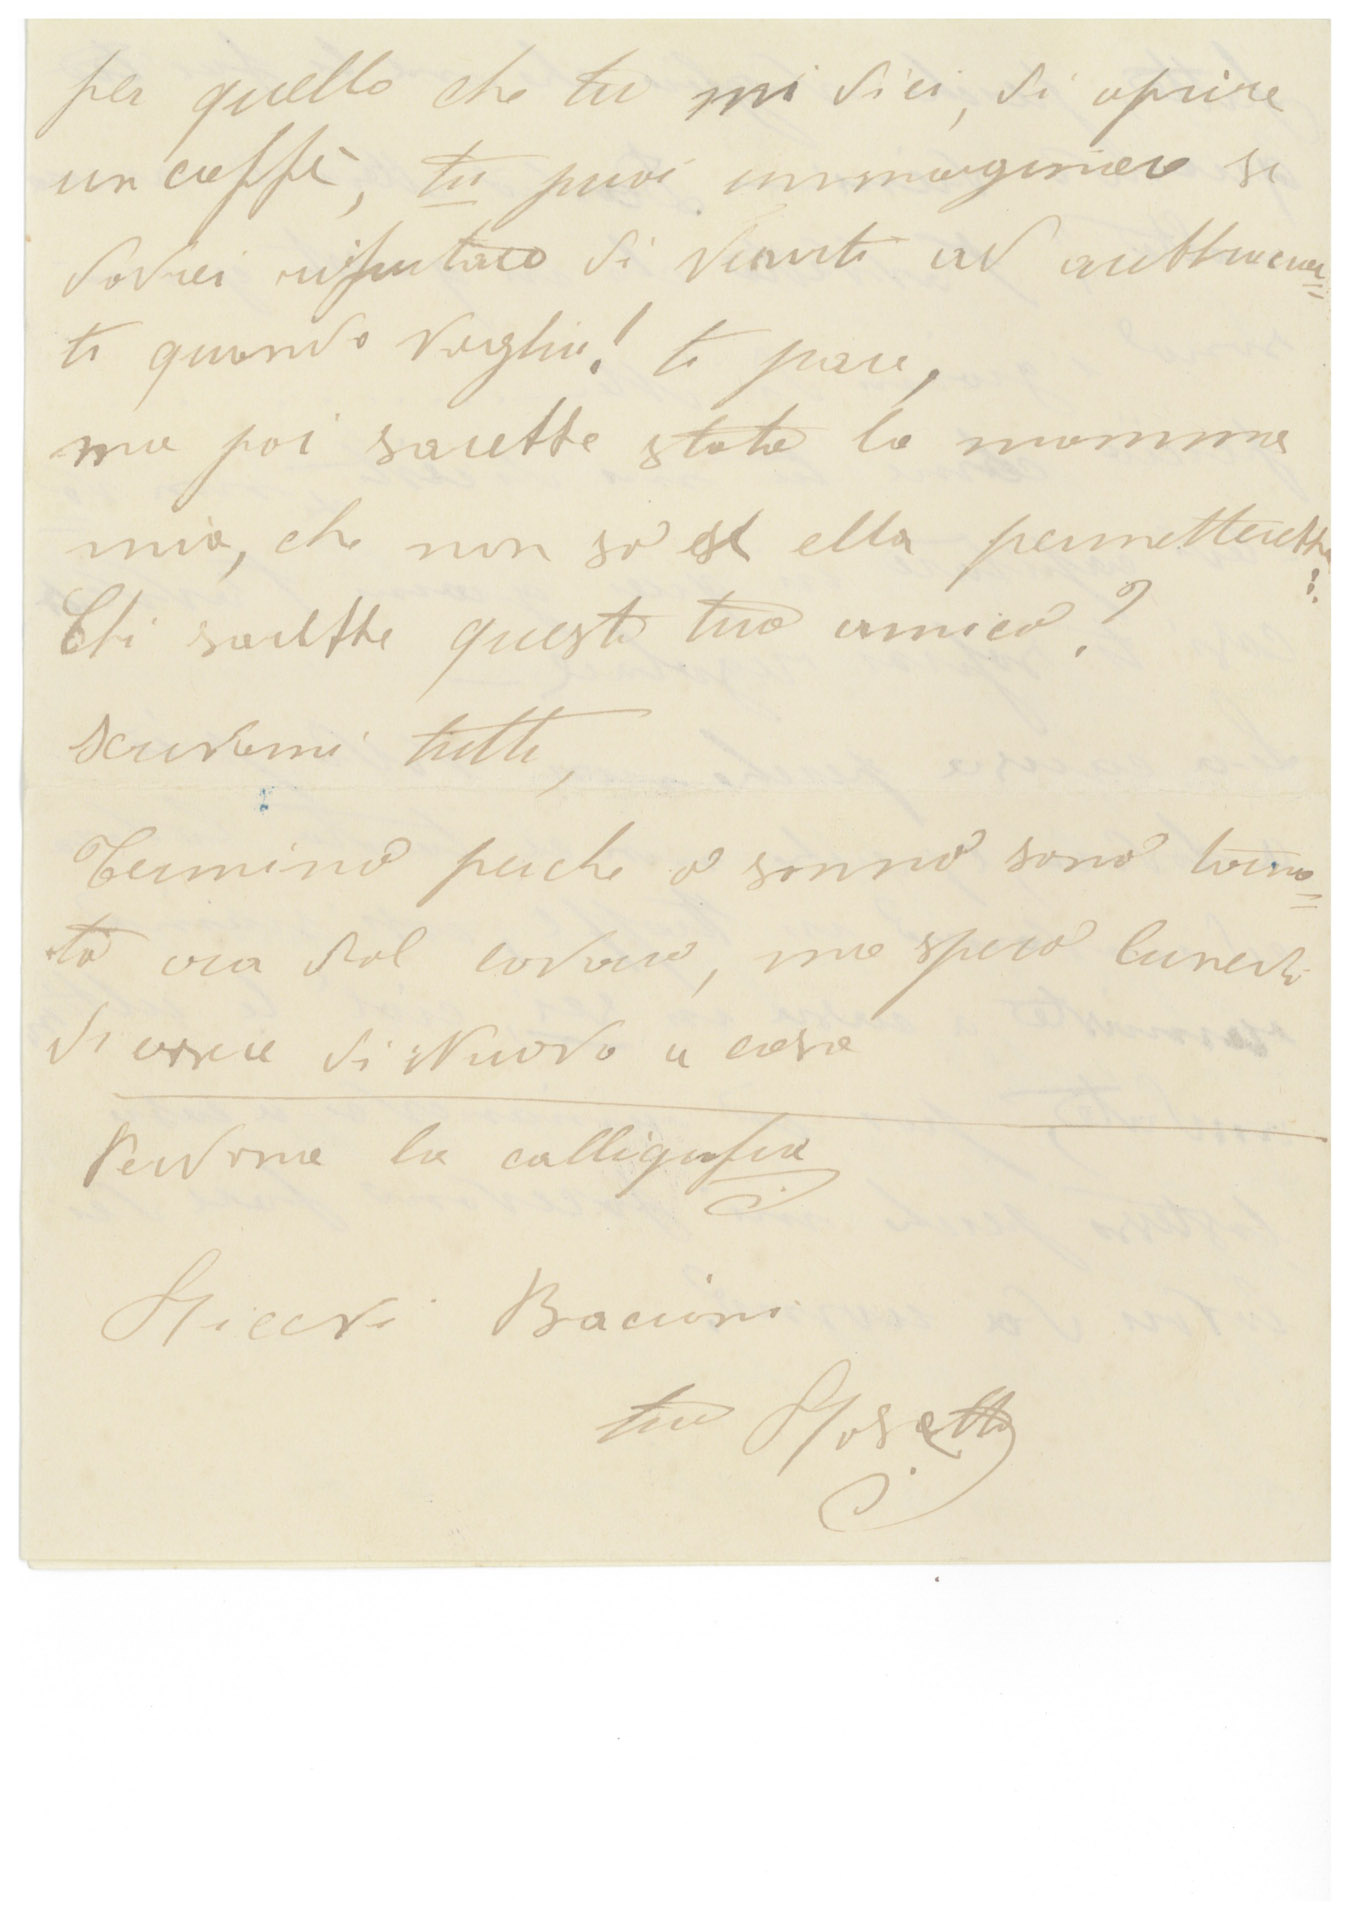 per quello che tu mi dici, di aprire
un caffè, tu puoi immaginare se
dovrei rifiutare di venirti ad abbraciar=
ti quando voglio! ti pare,
ma poi sarebbe stata la mamma
mia, che non sò se ella permetterebbe?
Chi sarebbe questo tuo amico?
scrivemi tutto,
Termino perche ò sonno sono torna=
ta ora dal lavoro, ma spero lunedi
di essere di nuovo a casa
Perdona la calligrafia
Ricevi Bacioni
tua Rosetta